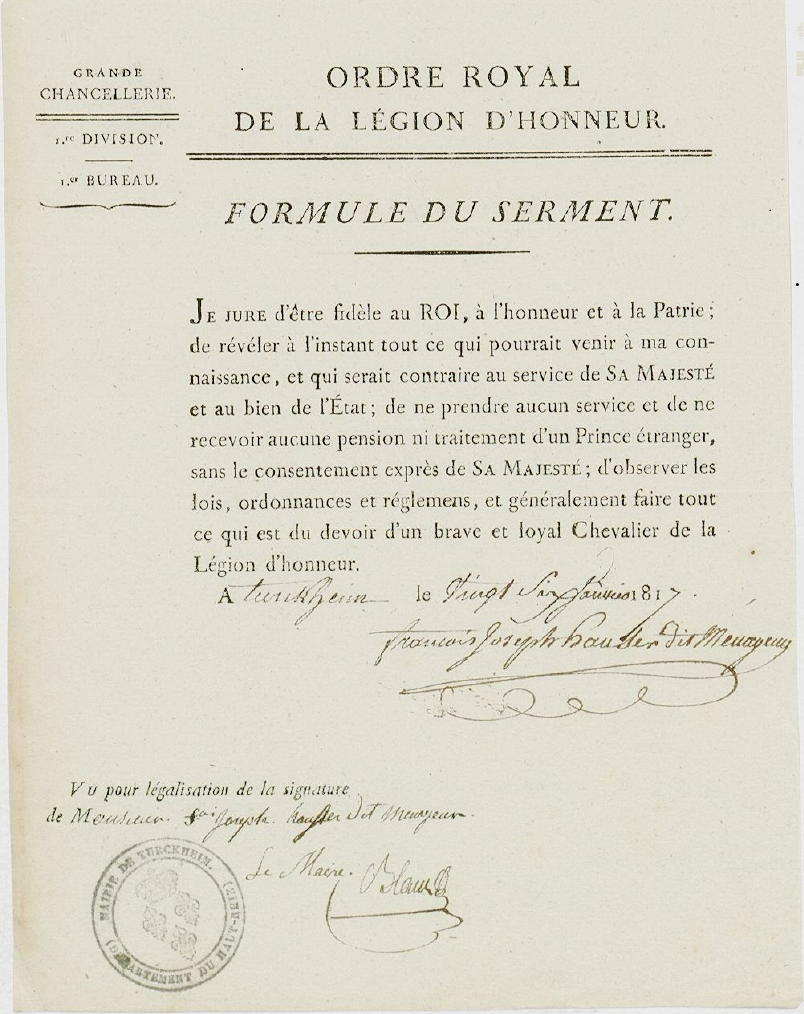 GRANDE
CHANCELLERIE.
1.re DIVISION.
1.er BUREAU.
ORDRE ROYAL
DE LA LÉGION D'HONNEUR.
FORMULE DU SERMENT.
JE JURE d'être fidèle au ROI, à l'honneur et à la Patrie;
de révéler à l'instant tout ce qui pourrait venir à ma con-
naissance, et qui serait contraire au service de SA MAJESTÉ
et au bien de l'État; de ne prendre aucun service et de ne
recevoir aucune pension ni traitement d'un Prince étranger,
sans le consentement exprès de SA MAJESTÉ; d'observer les
lois, ordonnances et réglemens, et généralement faire tout
ce qui est du devoir d'un brave et loyal Chevalier de la
Légion d'honneur.
A turckheim le Vingt Six Janvier 1817.
francois Joseph hauller dit Menageur
Vu pour légalisation de la signature
de Monsieur Joseph dit
Le Maire.
MAIRIE DE TURCKHEIM.
(DÉPARTEMENT DU HAUT-RHIN)